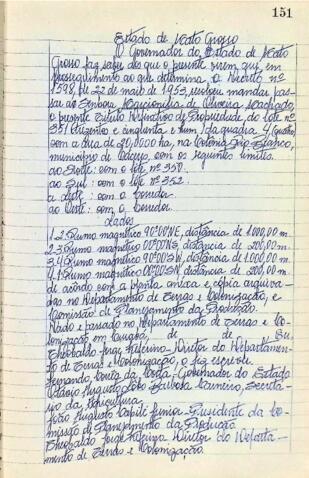 151
Estado de Mato Grosso
O Governador do Estado de Mato
Grosso faz saber aos que o presente virem que, em
prosseguimento ao que determina o Decreto nº
1598, de 22 de maio de 1953, resolveu mandar pas-
sar ao Senhor de Oliveira Machado,
o presente Título Definitivo de Propriedade do lote nº
351 (trezentos e cinquenta e hum) da quadra 4 (quatro)
com a área de 20,0000 ha, na Colônia Rio Branco,
município de Cáceres, com os seguintes limites.
ao Norte: com o lote nº 350.
ao Sul: com o lote nº 352.
a Leste: com o corredor.
ao Oeste: com o corredor.
Lados
1-2. Rumo magnético 90°00'NE, distância de 1.000,00 m.
2-3. Rumo magnético 00°00'NS, distância de 200,00 m.
3-4. Rumo magnético 90°00'SW, distância de 1.000,00 m.
4-1. Rumo magnético 00°00'SN, distância de 200,00 m.
de acôrdo com a planta anexa e cópia arquiva-
das no Departamento de Terras e Colonização, e
Comissão de Planejamento da Produção.
Dado e passado no Departamento de Terras e Co-
lonização em Cuiabá, de de Eu,
Theobaldo Jorge Diretor do Departamen-
to de Terras e Colonização, o fiz escrever.
Fernando Corrêa da Costa, Governador do Estado
Augusto Barbosa Carneiro, Secretá-
rio da Agricultura.
João Augusto Capilé Junior, Presidente da Co-
missão de Planejamento da Produção
Theobaldo Jorge Diretor do Departa-
mento de Terras e Colonização.